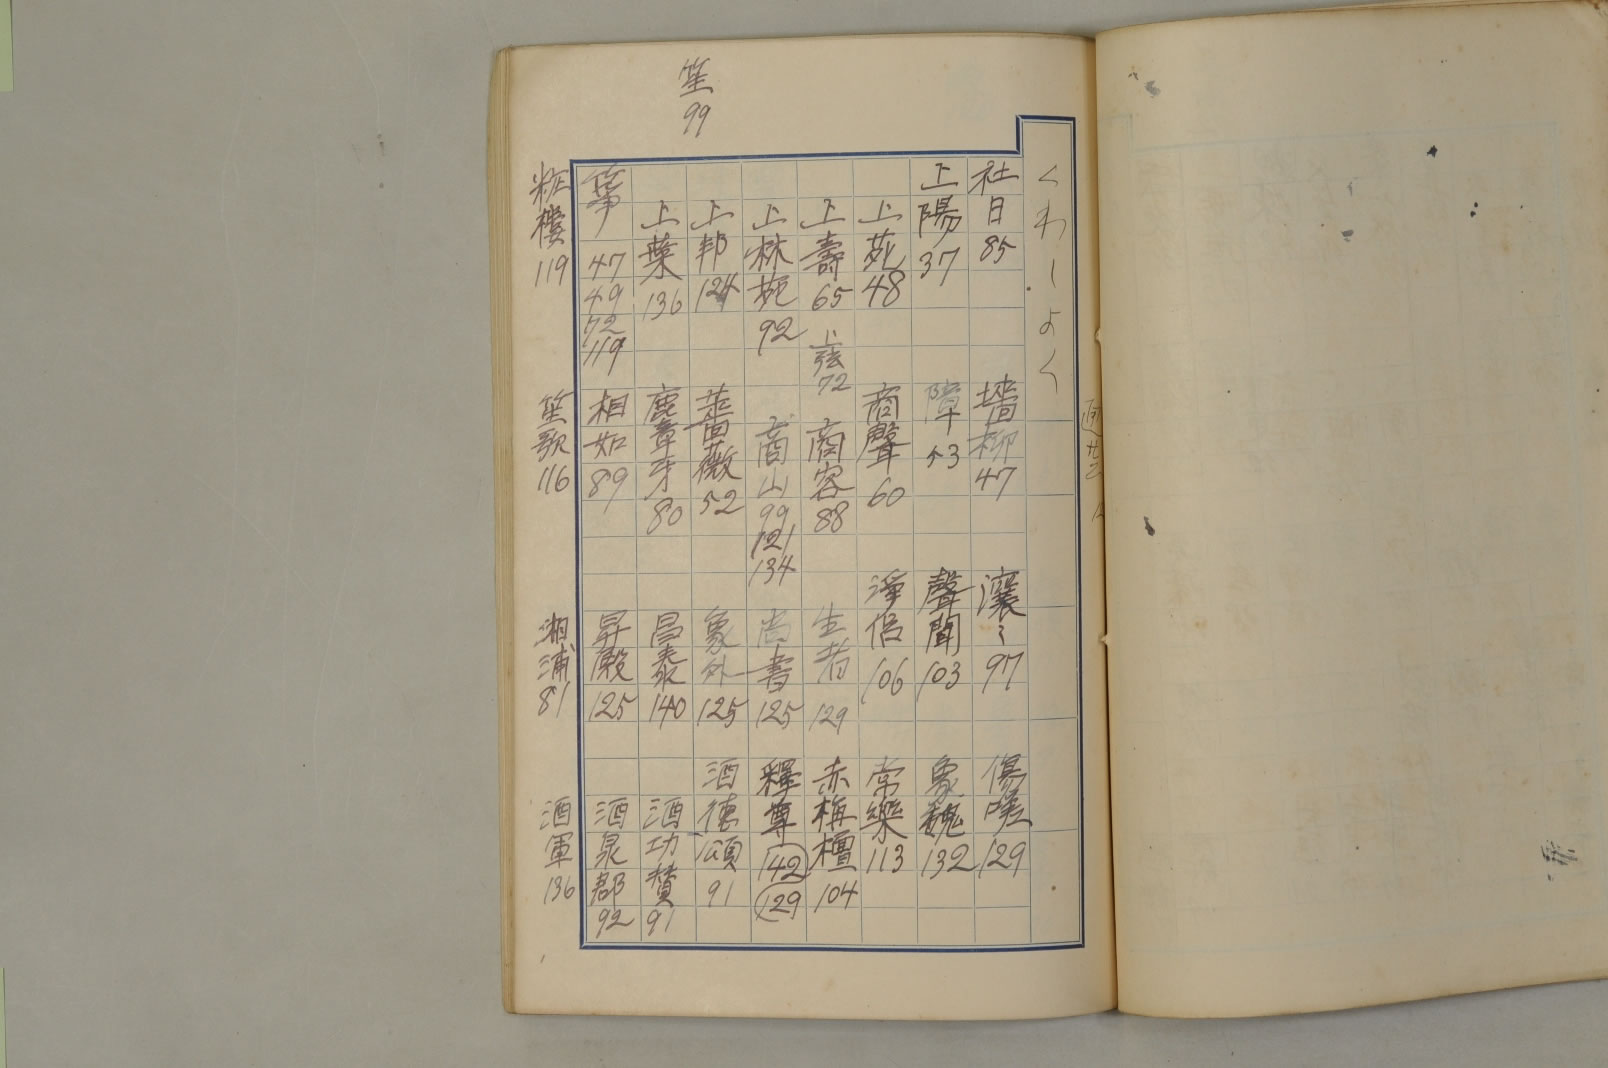 くわしよく
社日 85
墻柳 47
瀼〻 97
傷嘆 129
上陽 37
障 43
聲聞 103
象魏 132
上苑 48
商聲 60
淨侶 106
常樂 113
上壽 65
上弦 72
商容 88
生者 129
赤栴檀 104
上林苑 92
商山 99 121 134
尚書 125
釋尊 142 129
上邦 124
薔薇 52
象外 125
酒德頌 91
上葉 136
麞牙 80
昌泰 140
酒功賛 91
箏 47 49 72 119
相如 89
昇殿 125
酒泉郡 92
粧樓 119
笙歌 116
湘浦 81
酒軍 136
笙 99